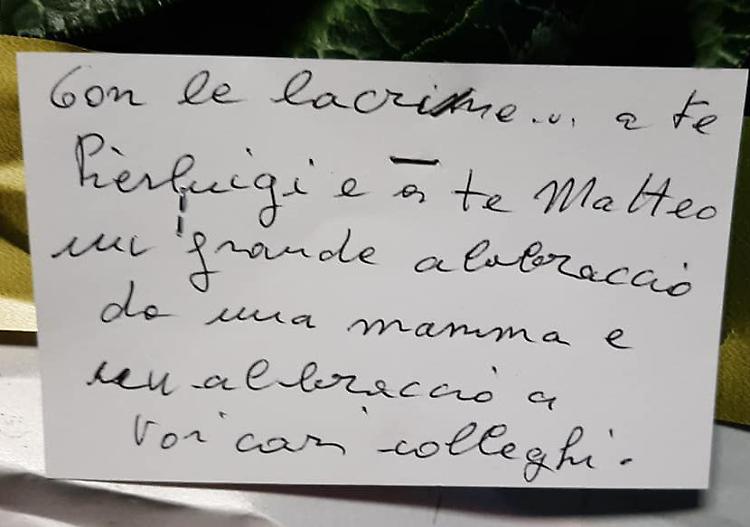 Con le lacrime... a te
Pierluigi e a te Matteo
un grande abbraccio
da una mamma e
un abbraccio a
voi cari colleghi.